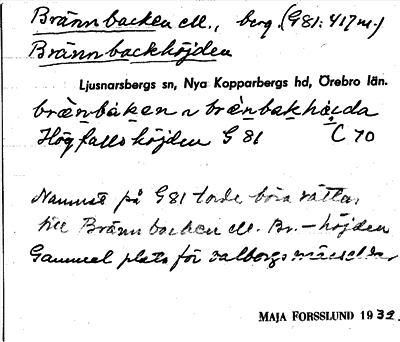 Brännbacken ell., berg. (G81: 417 m.)
Brännbackhöjden
Ljusnarsbergs sn, Nya Kopparbergs hd, Örebro län.
Högfallshöjden G 81 C 70
Namnet på G81 torde böra rättas
till Brännbacken ell. Br.-höjden
Gammal plats för valborgsmässeldar
MAJA FORSSLUND 1932.